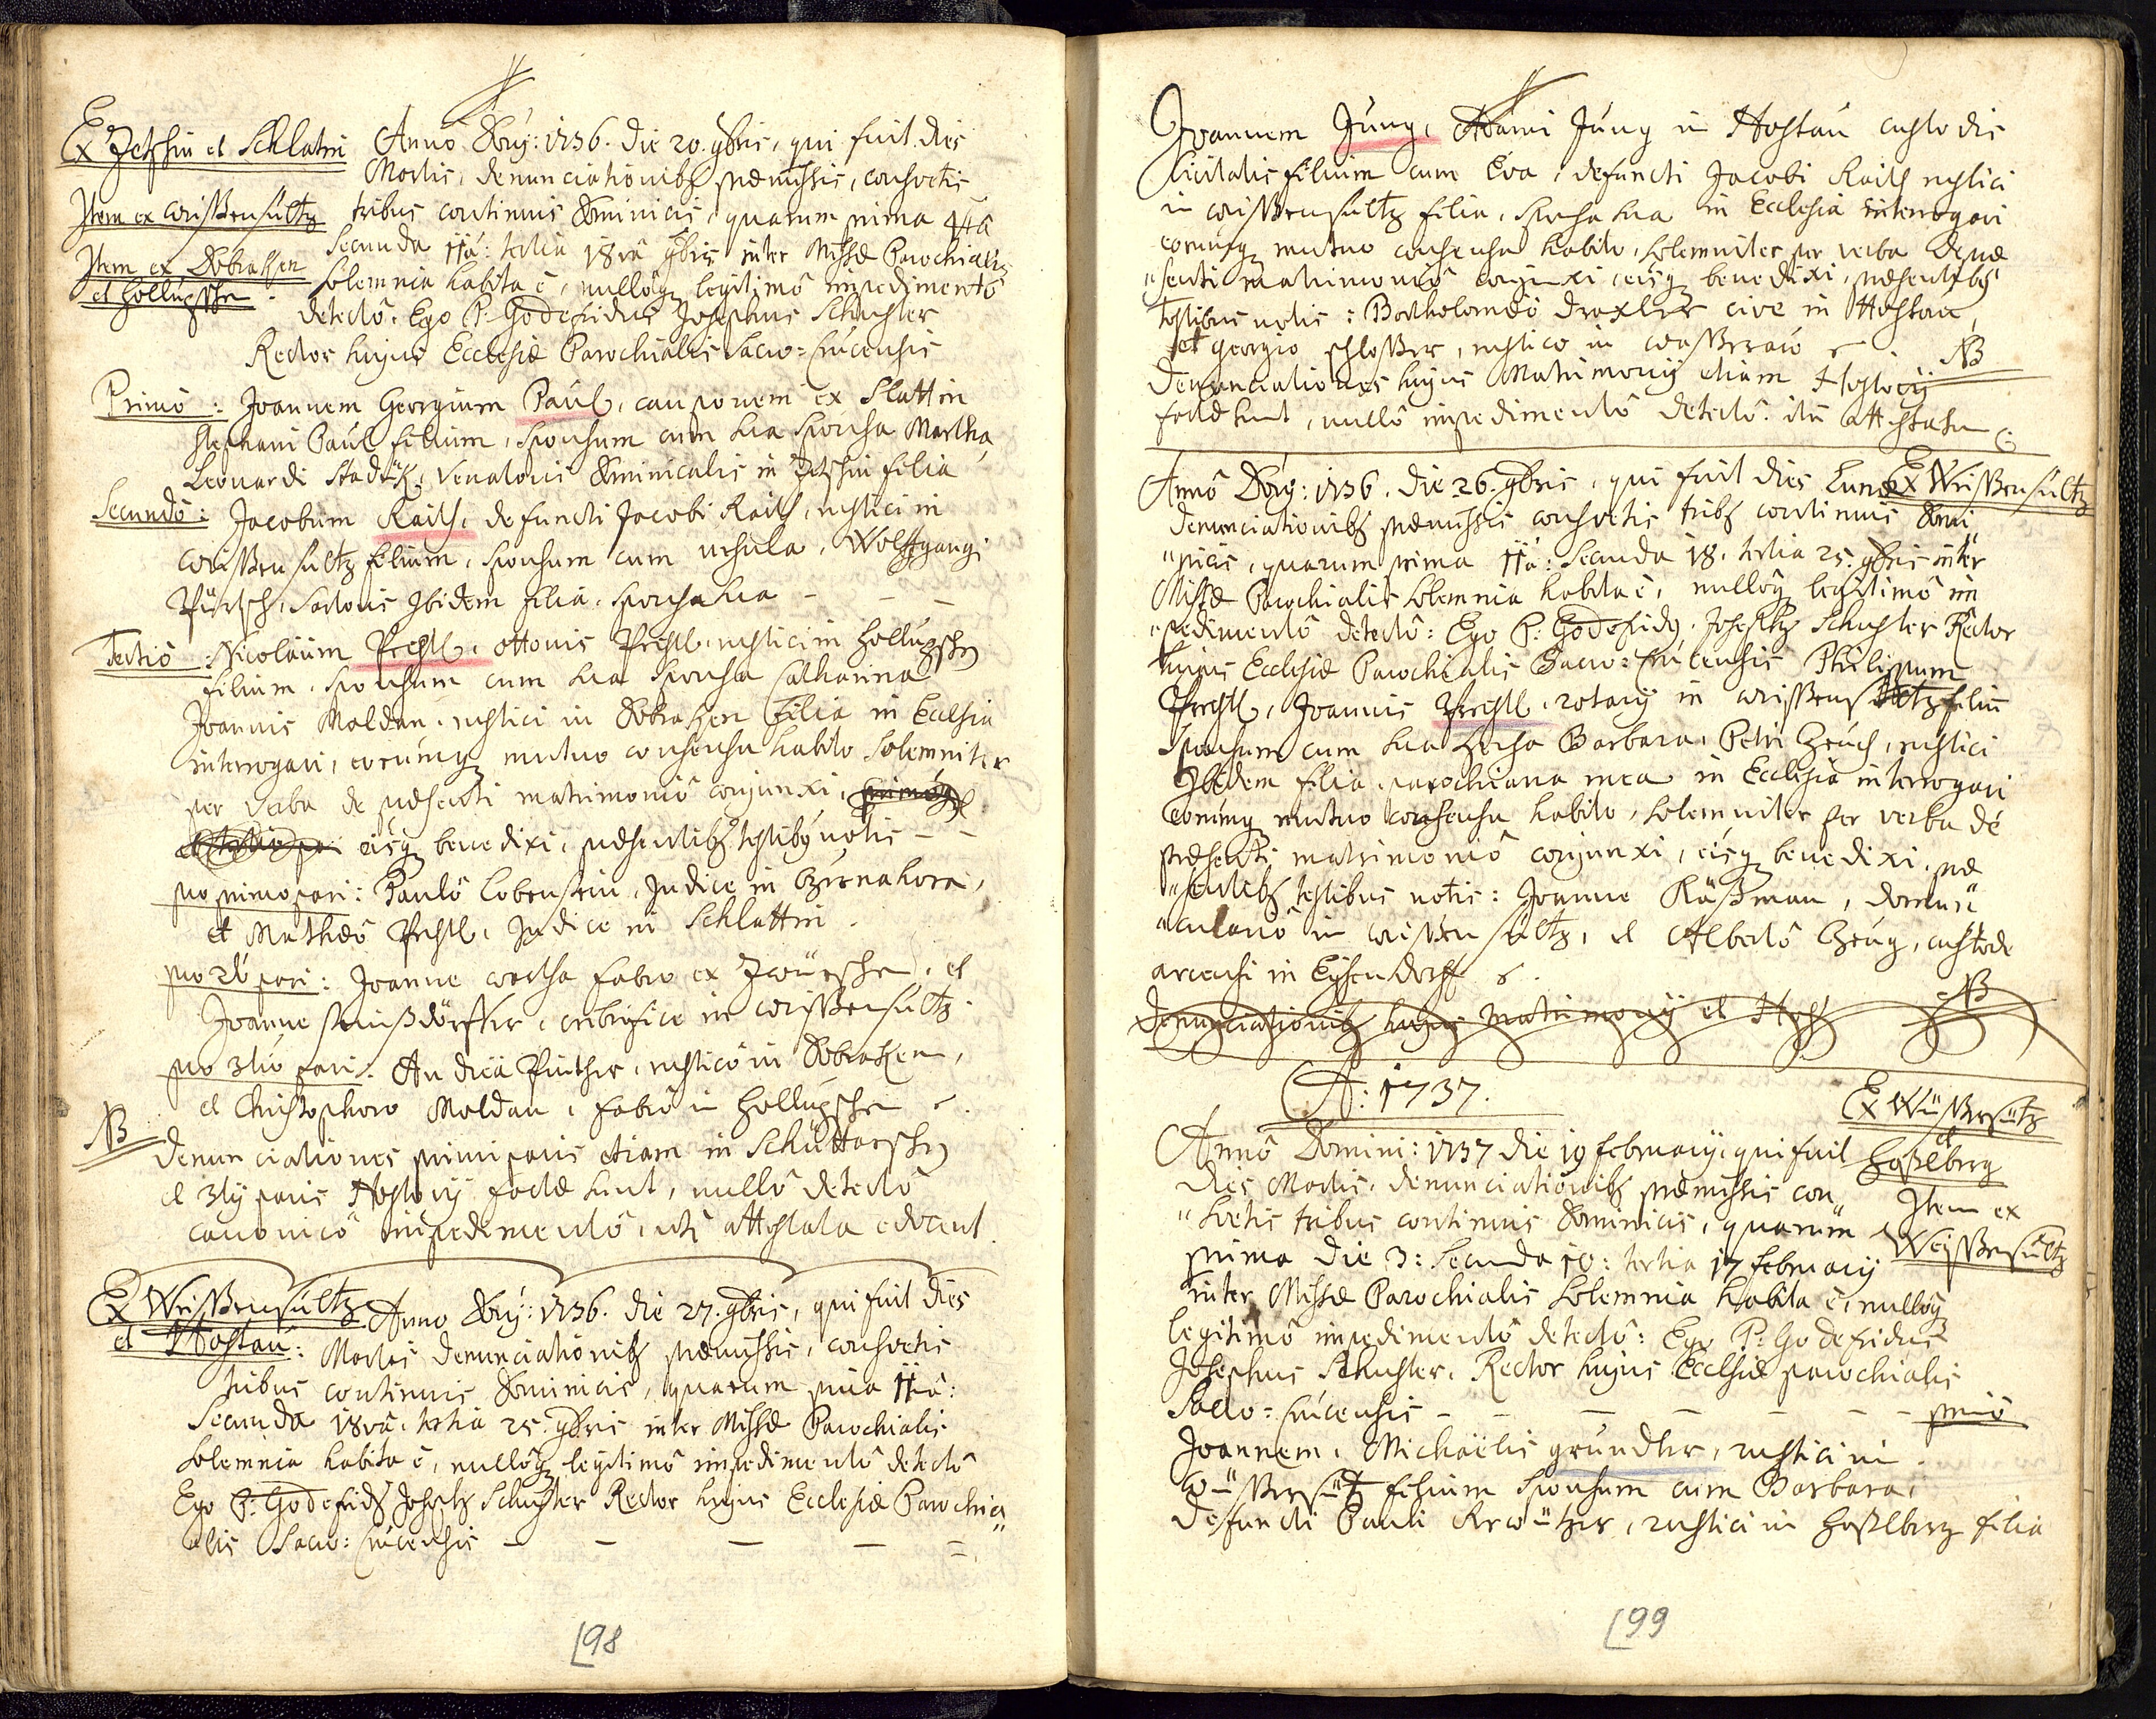 Ex Zetschin et Schlatin
Item ex Weissensültz
Item ex Dobrahen
et Hollupschen
Anno Dnij: 1736. die 20. 9bris, qui fuit dies
Martis, denunciationib9 praemissis, consvetis
tribus continuis Dominicis, quarum prima 4ta
secunda 11a: tertia 18va 9bris inter Missae Parochialis
solemnia habita ē, nullôq3 legitimô impedimentô
detectô. Ego P: Godefridus Josephus Schuster
Rector hujus Ecclesiae Parochialis Sacro=Crucensis
Primô: Joannem Georgium Paul, cauponem ex Slattin
Stephani Paul filium, sponsum cum sua sponsa Martha,
Leonardi, Venatoris Dominicalis in Zetschin filia
Secundô: Jacobum Raith, defuncti Jacobi Raith, rustici in
Weissensultz filium, sponsum cum Ursula, Wolffgangi
Pürtsch, sartoris Ibidem filia, sponsa sua - - -
Tertiô: Nicolaum Prechtl, Ottonis Prechtl, rustici in Hollupschen
filium, sponsum cum sua sponsa Catharina
Joannis Moldan, rustici in Dobrahen filia in Ecclesia
interrogavi, eorumq3 mutuo consensu habito solemniter
per verba de praesenti matrimoniô conjunxi,
eisq3 benedixi, praesentib9 testib9 notis - -
pro primo pari: Paulô Lobenstein, Judice in Czernahora,
et Mathaeô Prechtl, Judice in Schlattin.
pro 2do pari: Joanne Wartha fabro ex Zwürschen, et
Joanne, cribrifice in Weissensultz.
pro 3tio pari: Andrea Pinther, rusticô in Dobrahen,
et Christophoro Moldan, fabrô in Hollupschen.
NB
denunciationes primi paris etiam in Schüttarschen
et 3tij paris Hostovij factae sunt, nullô detectô
canonicô impedimentô, uti attestata edocent.
Ex Weissensultz
et Hostau:
Anno Dnij: 1736. die 27. 9bris, qui fuit dies
Martis denunciationib9 praemissis, consvetis
tribus continuis Dominicis, quarum prima 11a:
Secunda 18va, tertia 25. 9bris inter Missae Parochialis
solemnia habita ē, nullôq3 legitimô impedimentô detectô
Ego P: Godefrid9 Joseph9 Schuster Rector hujus Ecclesiae Parochi
alis Sacro=Crucensis - - - - =
198
Joannem Jung, Adami Jung in Hostau custodis
Civitatis filium cum Eva, defuncti Jacobi Raith rustici
in Weissensultz filia, sponsa sua in Ecclesia interrogavi
eorumq3 mutuo consensu habito, solemniter per verba de prae
"senti matrimoniô conjunxi, eisq3 benedixi, praesentib9
testibus notis: Bartholomaeô Draxler cive in Hostau,
et Georgio Schlosser, rustico in Wasserau.
NB
denunciationes hujus Matrimonij etiam Hostovij
factae sunt, nullô impedimentô detectô. uti attestatum
Ex Weissensultz
Annô Dnij: 1736. die 26. 9bris, qui fuit dies Lunae
denunciationib9 praemissis consvetis trib9 continuis Domi
"nicis, quarum prima 11a: Secunda 18. tertia 25. 9bris inter
Missae Parochialis solemnia habita ē, nullôq3 legitimô im
"pedimentô detectô: Ego P: Godefrid9 Joseph9 Schuster Rector
hujus Ecclesiae Parochialis Sacro=Crucensis Philippum
Prechtl, Joannis Prechtl, rotarij in Weissensultz filiū
sponsum cum sua sponsa Barbara, Petri Czeuch, rustici
Ibidem filia, parochiana mea in Ecclesia interrogavi
eorumq3 mutuo consensu habito, solemniter per verba de
praesenti matrimoniô conjunxi, eisq3 benedixi, prae
"sentib9 testibus notis: Joanne Rässman, domun
"culariô in Weissensultz, et Albertô Czeug, custode
arcensi in Eysendorff.
NB
denunciationib9 hujus matrimonij et Host
A: 1737.
Ex Wüssersütz
et
Hasslberg
Item ex
Weissensultz
Annô Domini: 1737 die 19 februarij, qui fuit
dies Martis, denunciationib9 praemissis con
"svetis tribus continuis Dominicis, quarum
prima die 3: Secunda 10: tertia 17 februarij
inter Missae Parochialis solemnia habita ē, nullôq3
legitimô impedimentô detectô: Ego P: Godefridus
Josephus Schuster, Rector hujus Ecclesiae parochialis
Sacro=Crucensis - - - - - - primô
Joannem, Michaëlis Gründler, rustici in
Wüssersütz filium sponsum cum Barbara,
defuncti Pauli, rustici in Hasslberg filia
199